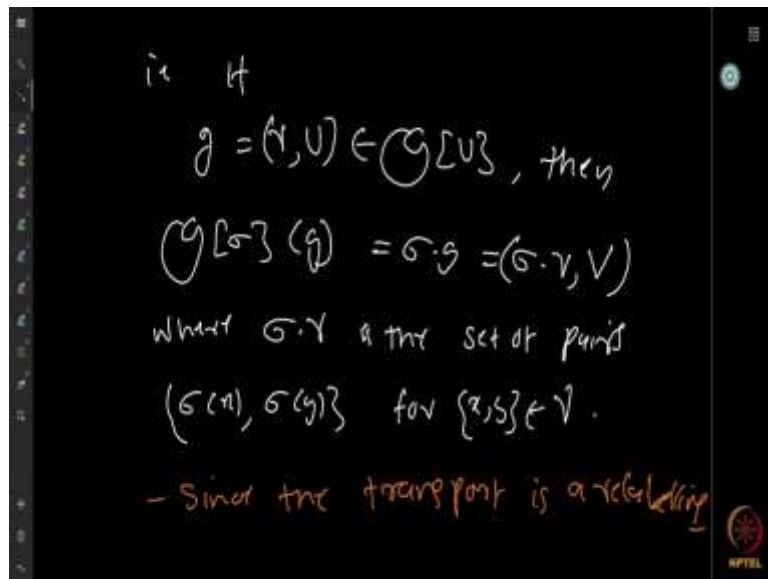 ie If
g = (γ, U) ∈ G[U], then
G[σ](g) = σ·g = (σ·γ, V)
where σ·γ is the set of pairs
{σ(x), σ(y)} for {x,y} ∈ γ.
- Since the transport is a relabelling
NPTEL